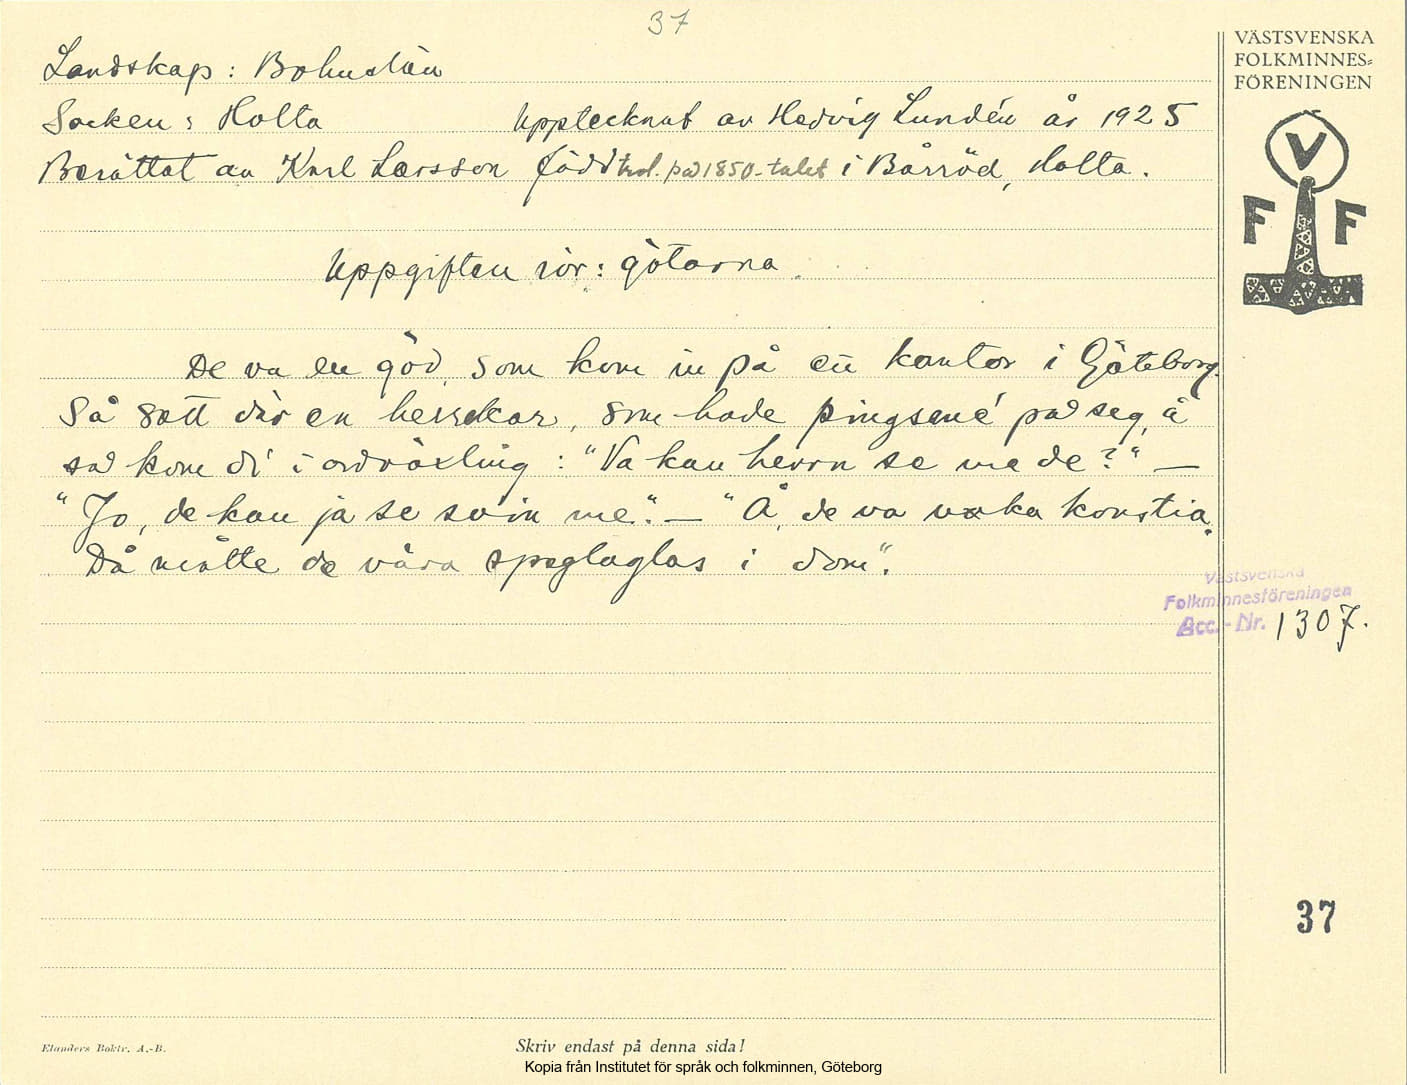 37
VÄSTSVENSKA
FOLKMINNES=
FÖRENINGEN
V
F F
Landskap: Bohuslän
Socken: Holta Upptecknat av Hedvig Lundén år 1925
Berättat av Karl Larsson född trol. på 1850-talet i Bärröd, Holta.
Uppgiften rör: götarna.
De va en göd, som kom in på en kontor i Göteborg.
Så satt där en herrekar, som hade pingsené på seg, å
så kom di i ordväxling: "Va kan herrn se me de?" —
"Jo, de kan ja se svin me." — "Å, de va vaka konstia.
Då måtte de våra speglaglas i dom".
Västsvenska
Folkminnesföreningen
Acc.-Nr. 1307.
37
Elanders Boktr. A.-B.
Skriv endast på denna sida!
Kopia från Institutet för språk och folkminnen, Göteborg